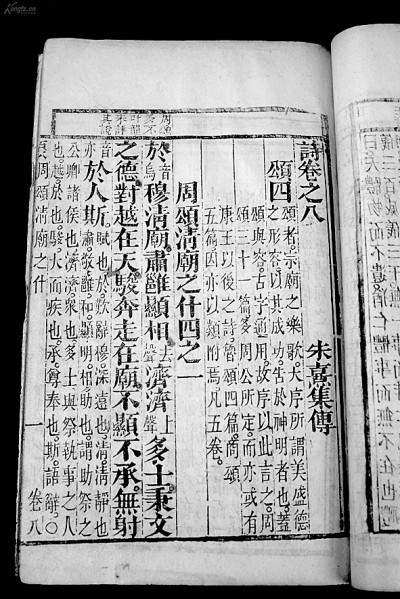 Kongfz.cn
周頌
多不
叶韻
未詳
其說
詩卷之八
朱熹集傳
頌四
頌者宗廟之樂歌大序所謂美盛德
之形容以其成功告於神明者也蓋
頌與容古字通用故序以此言之周
頌三十一篇多周公所定而亦或有
康王以後之詩魯頌四篇商頌
五篇因亦以類附焉凡五卷
周頌清廟之什四之一
於音烏穆清廟肅雝顯相去聲濟濟上聲多士秉文
之德對越在天駿奔走在廟不顯不承無射
音亦於人斯
賦也於歎辭穆深遠也清清靜也
肅敬雝和顯明相助也謂助祭之
公卿諸侯也濟濟衆也多士與祭執事之人
也越於也駿大而疾也承尊奉也斯語辭○
周頌清廟之什 一 卷八